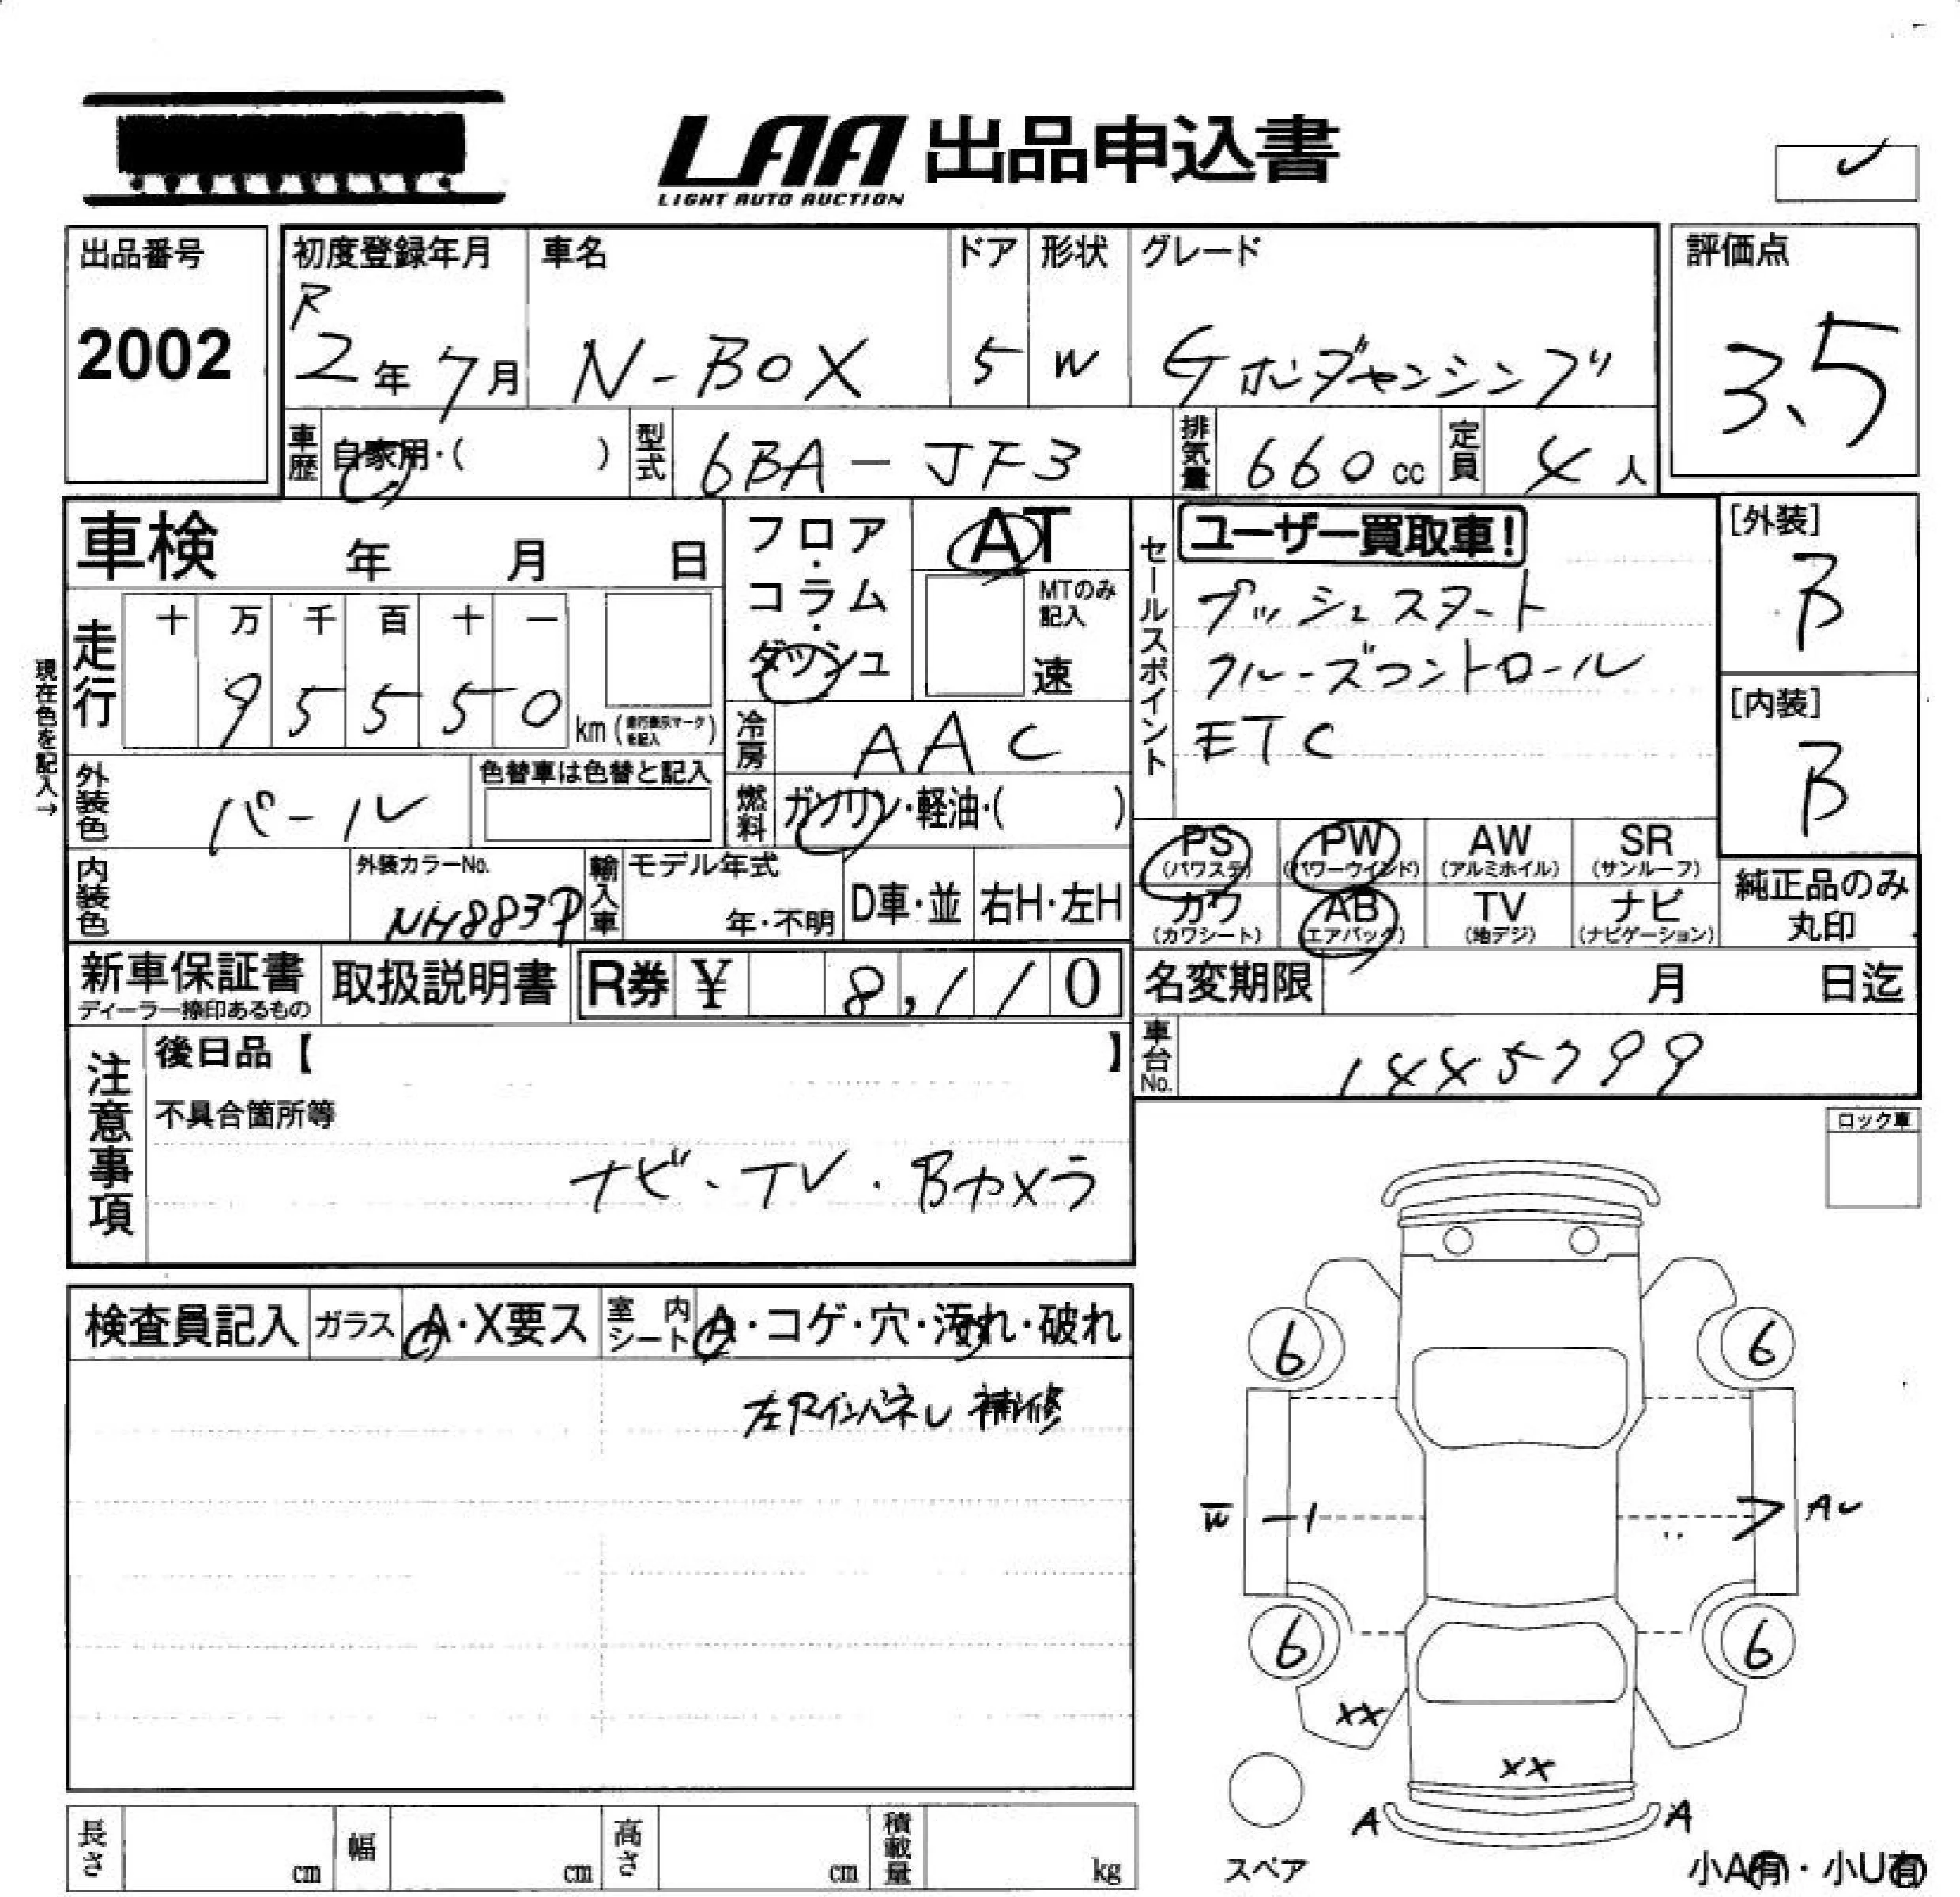 LAA 出品申込書
LIGHT AUTO AUCTION
✓
出品番号
2002
初度登録年月
R
2年7月
車名
N-BOX
ドア
5
形状
W
グレード
Gホンダセンシング
評価点
3.5
車歴 自家用・( )
型式 6BA-JF3
排気量 660cc
定員 4人
車検 年 月 日
走行
十 万 千 百 十 一
9 5 5 5 0
km(走行表示マークを記入)
現在色を記入→
外装色 パール
色替車は色替と記入
内装色
外装カラーNo.
NH883P
輸入車
モデル年式
年・不明
D車・並
右H・左H
フロア・コラム・ダッシュ
AT
MTのみ記入
速
冷房 AAC
燃料 ガソリン・軽油・( )
セールスポイント
ユーザー買取車!
プッシュスタート
クルーズコントロール
ETC
[外装]
B
[内装]
B
PS (パワステ)
PW (パワーウインド)
AW (アルミホイル)
SR (サンルーフ)
カワ (カワシート)
AB (エアバック)
TV (地デジ)
ナビ (ナビゲーション)
純正品のみ丸印
新車保証書
ディーラー捺印あるもの
取扱説明書
R券 ¥ 8,110
名変期限 月 日迄
車台No. 1445799
注意事項
後日品【 】
不具合箇所等
ナビ・TV・Bカメラ
ロック車
検査員記入
ガラス A・X要ス
室内シート A・コゲ・穴・汚れ・破れ
左Rインパネル 補修
6 6
W
AU
6 6
XX
XX
A A
スペア
小A有・小U有
長さ cm
幅 cm
高さ cm
積載量 kg